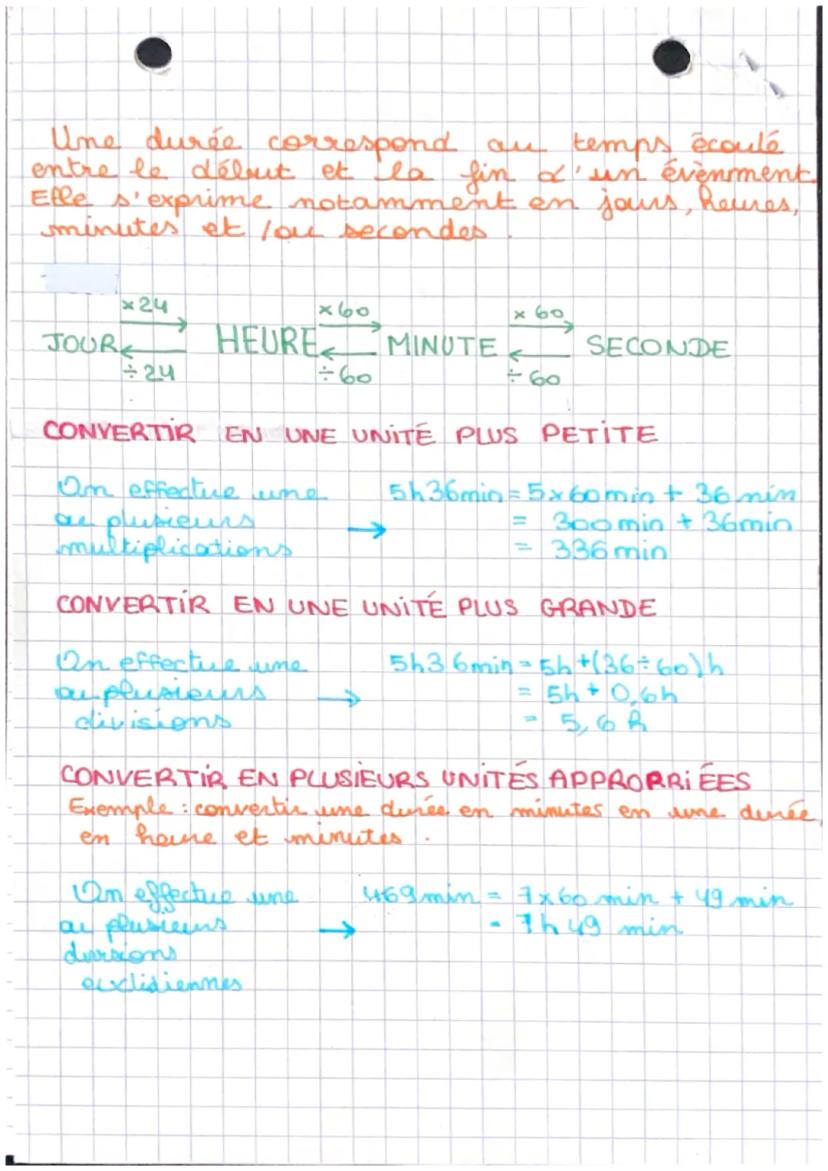 Une durée correspond au temps écoulé
entre le début et la fin d'un évènment.
Elle s'exprime notamment en jours, heures,
minutes et /ou secondes.
×24 ×60 × 60
JOUR HEURE MINUTE SECONDE
÷24 ÷60 ÷60
CONVERTIR EN UNE UNITÉ PLUS PETITE
On effectue une 5h36min = 5×60min + 36 min
ou plusieurs → = 300min + 36min
multiplications = 336min
CONVERTIR EN UNE UNITÉ PLUS GRANDE
On effectue une 5h36min = 5h+(36÷60)h
ou plusieurs → = 5h + 0,6h
divisions = 5,6 h
CONVERTIR EN PLUSIEURS UNITÉS APPRORRIÉES
Exemple : convertir une durée en minutes en une durée
en heure et minutes.
On effectue une 469min = 7×60 min + 49 min
ou plusieurs → = 7h 49 min
divisions
euclidiennes